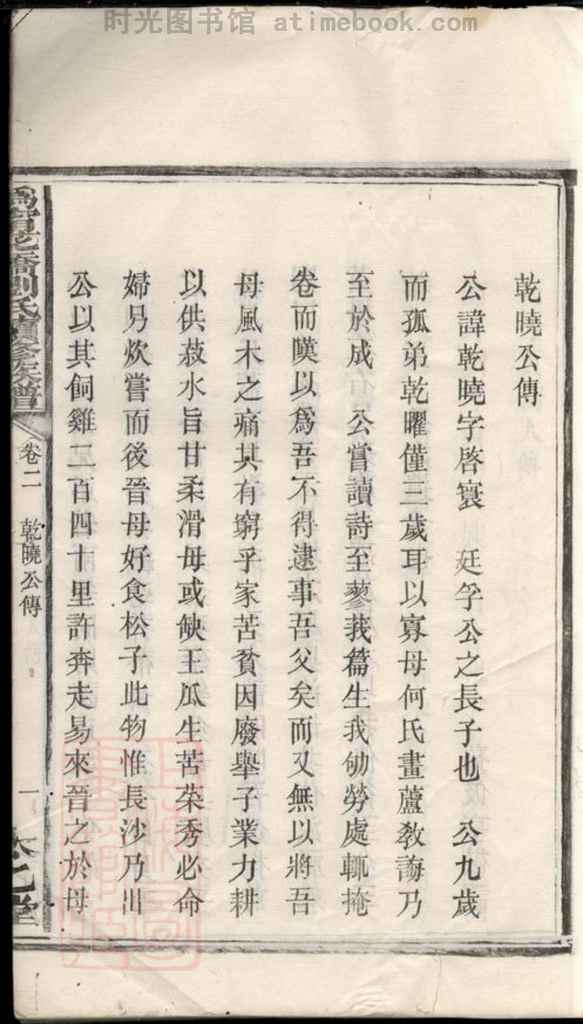 时光图书馆 atimebook.com
乾曉公傳
公諱乾曉字啓寰 廷孚公之長子也 公九歲
而孤弟乾曜僅三歲耳以寡母何氏畫蘆敎誨乃
至於成 公嘗讀詩至蓼莪篇生我劬勞處輒掩
卷而嘆以爲吾不得逮事吾父矣而又無以將吾
母風木之痛其有窮乎家苦貧因廢舉子業力耕
以供菽水旨甘柔滑毋或缺王瓜生苦菜秀必命
婦另炊嘗而後晉母好食松子此物惟長沙乃出
公以其飼雞二百四十里許奔走易來晉之於母
劉氏續修族譜
卷二 乾曉公傳
一
堂